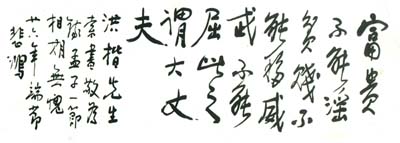 富貴
不能淫
貧賤不
能移威
武不能
屈此之
謂大丈
夫
洪楷先生
索書敬為
錄孟子一節
相期無愧
廿六年端節
悲鴻